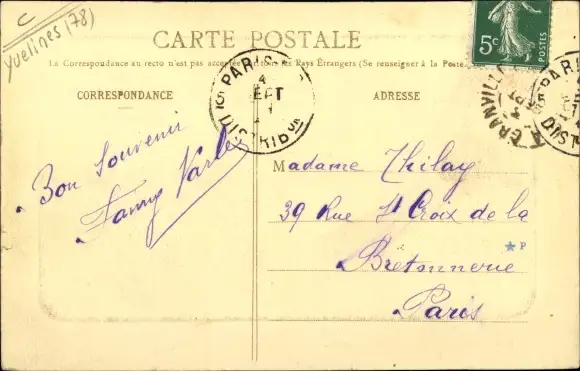 C
Yvelines (78)
CARTE POSTALE
La Correspondance au recto n'est pas acceptée par tous les Pays Étrangers (Se renseigner à la Poste
5c
POSTES
CORRESPONDANCE
ADRESSE
PARIS
4
SEPT
DISTRIBON
GRANVILLE
PARIS
DIST
Bon souvenir
Fanny
Madame Thilay
39 Rue St Croix de la
Bretonnerie
P
Paris